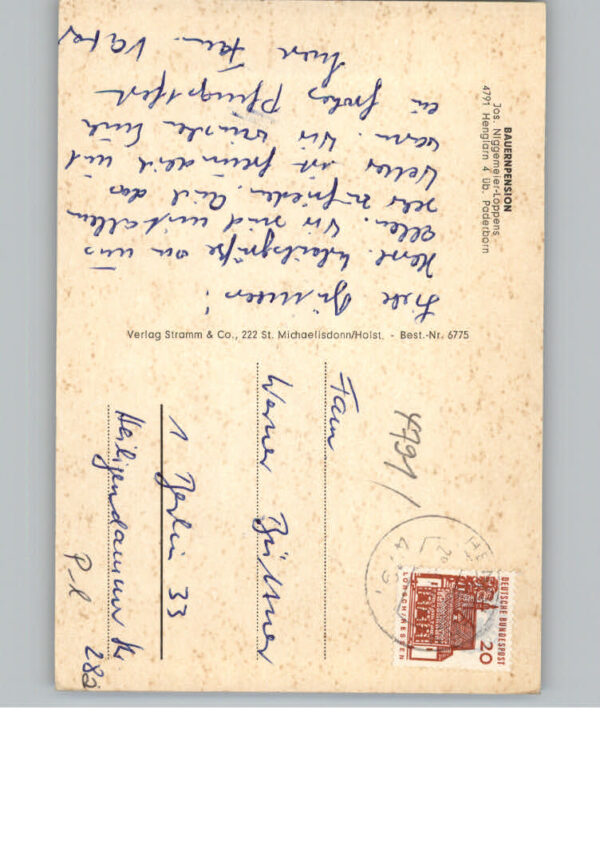 BAUERNPENSION
Jos. Niggemeier-Löppens
4791 Henglarn 4 üb. Paderborn
Herzl. Urlaubsgrüße von uns
allen. Wir sind mit allem
sehr zufrieden. Auch das
Wetter ist freundlich und
warm. Wir wünschen Euch
ein frohes Pfingstfest
Eure Fam.
Verlag Stramm & Co., 222 St. Michaelisdonn/Holst. - Best.-Nr. 6775
4791
DEUTSCHE BUNDESPOST
20
LORSCH/HESSEN
Fam
Werner
1 Berlin 33
Heiligendammer Str